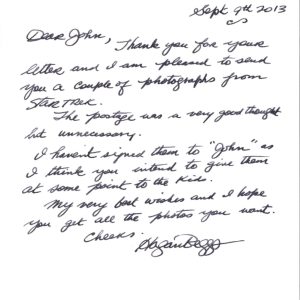 Sept 9th 2013
Dear John,
Thank you for your
letter and I am pleased to send
you a couple of photographs from
STAR TREK.
The postage was a very good thought
but unnecessary.
I haven't signed them to "John" as
I think you intend to give them
at some point to the kids.
My very best wishes and I hope
you get all the photos you want.
Cheers.
Hagan Beggs